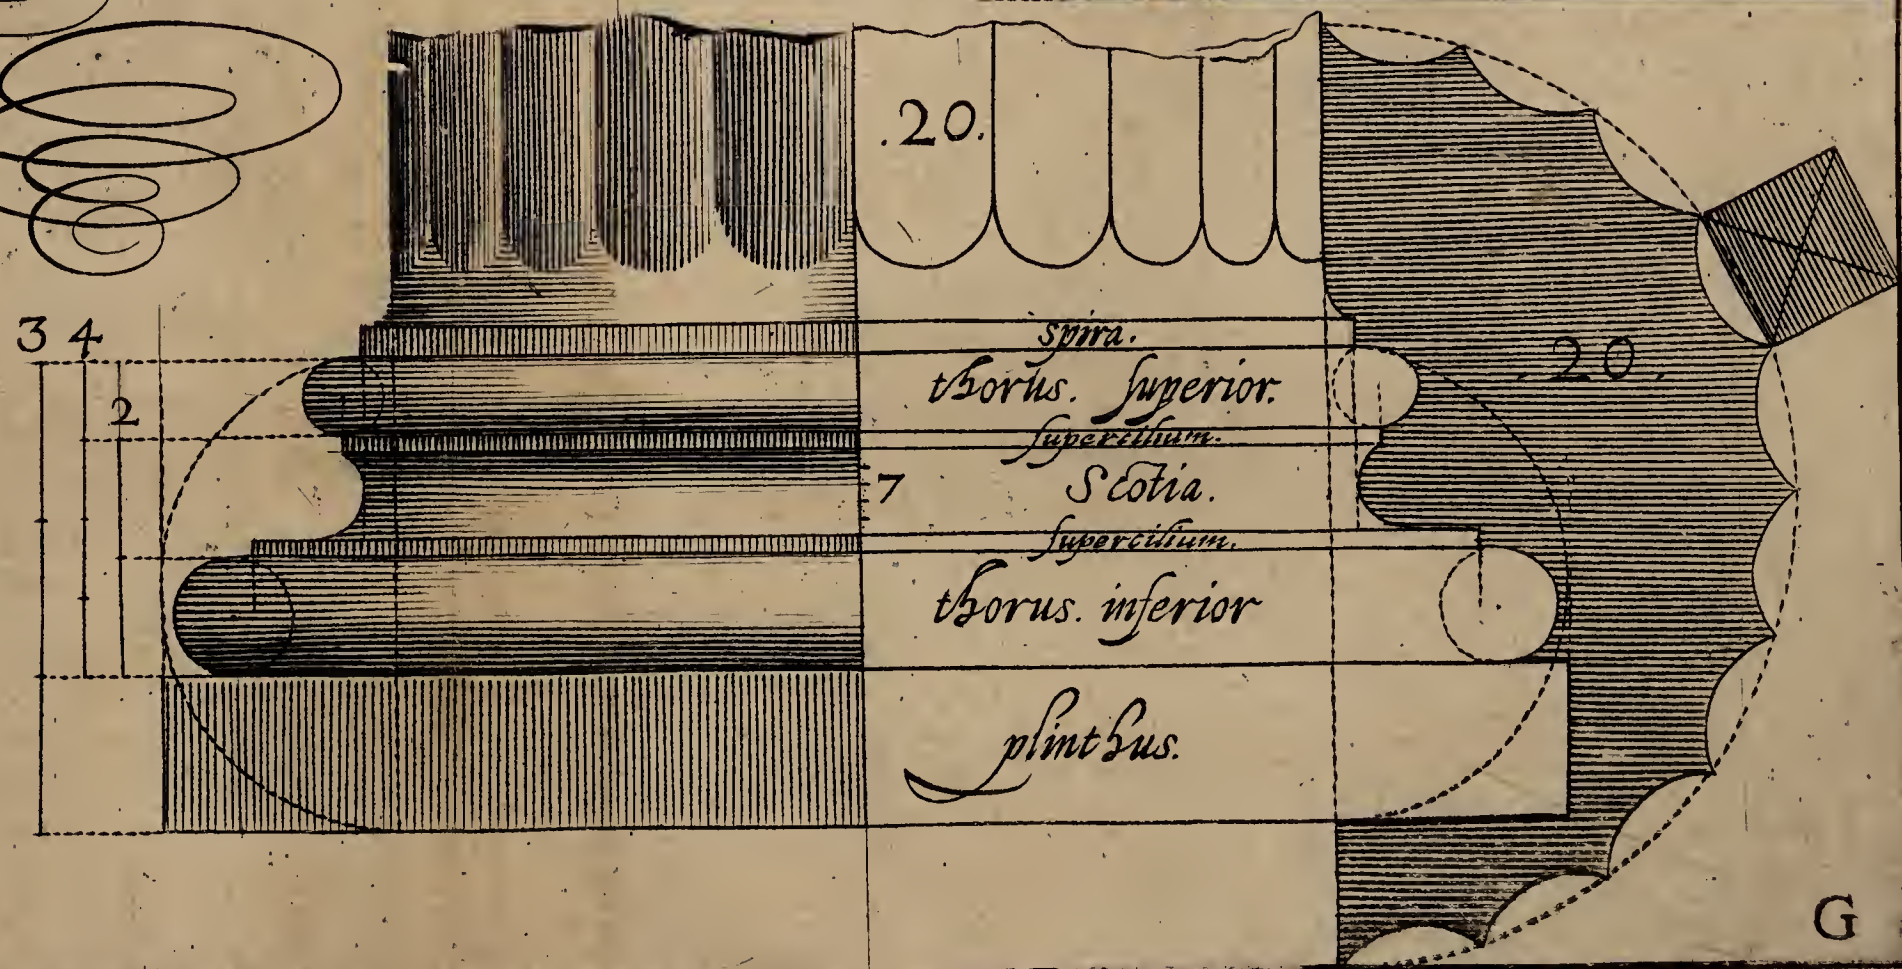 .20.
3 4
2
spira.
.20.
thorus. superior.
supercilium.
7
Scotia.
supercilium.
thorus. inferior
plinthus.
G